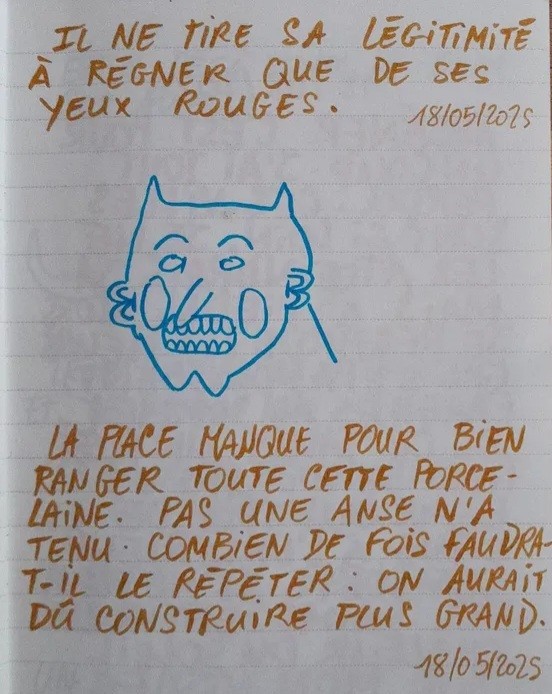 IL NE TIRE SA LÉGITIMITÉ
À RÉGNER QUE DE SES
YEUX ROUGES.
18/05/2025
LA PLACE MANQUE POUR BIEN
RANGER TOUTE CETTE PORCE-
LAINE. PAS UNE ANSE N'A
TENU. COMBIEN DE FOIS FAUDRA-
T-IL LE RÉPÉTER : ON AURAIT
DÛ CONSTRUIRE PLUS GRAND.
18/05/2025